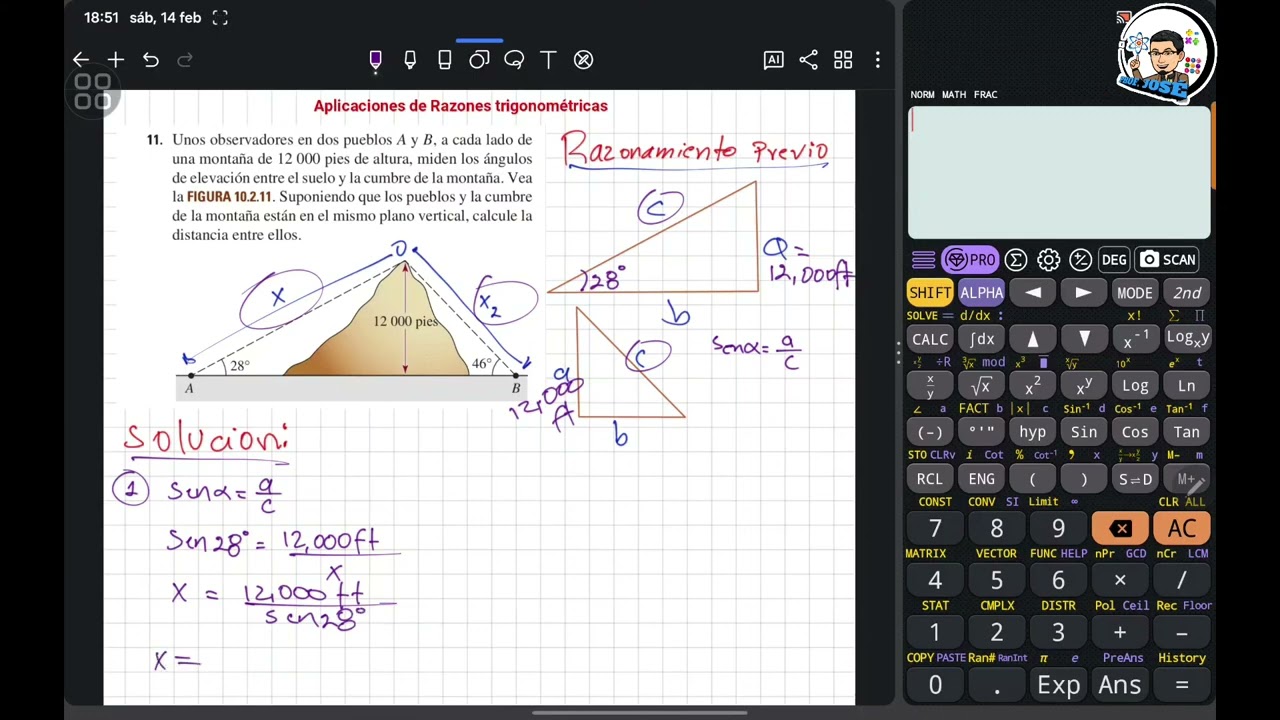 18:51 sáb, 14 feb
AI
Aplicaciones de Razones trigonométricas
11. Unos observadores en dos pueblos A y B, a cada lado de
una montaña de 12 000 pies de altura, miden los ángulos
de elevación entre el suelo y la cumbre de la montaña. Vea
la FIGURA 10.2.11. Suponiendo que los pueblos y la cumbre
de la montaña están en el mismo plano vertical, calcule la
distancia entre ellos.
O
x
x2
12 000 pies
28°
46°
A
B
Razonamiento Previo
c
28°
a =
12,000ft
b
c
a
12,000
ft
b
senα = a/c
Solucion:
1 senα = a/c
Sen28° = 12,000ft
x
x = 12,000 ft
sen28°
x =
PROF. JOSE
NORM MATH FRAC
PRO Σ DEG SCAN
SHIFT ALPHA ◄ ► MODE 2nd
SOLVE = d/dx : x! Σ Π
CALC ∫dx ▲ ▼ x⁻¹ Logxy
÷R ³√x mod x³ ˣ√y 10ˣ eˣ t
x/y √x x² xʸ Log Ln
∠ a FACT b |x| c Sin⁻¹ d Cos⁻¹ e Tan⁻¹ f
(−) °'" hyp Sin Cos Tan
STO CLRv i Cot % Cot⁻¹ , x y M− m
RCL ENG ( ) S⇌D M+
CONST CONV SI Limit ∞ CLR ALL
7 8 9 AC
MATRIX VECTOR FUNC HELP nPr GCD nCr LCM
4 5 6 × /
STAT CMPLX DISTR Pol Ceil Rec Floor
1 2 3 + −
COPY PASTE Ran# RanInt π e PreAns History
0 . Exp Ans =